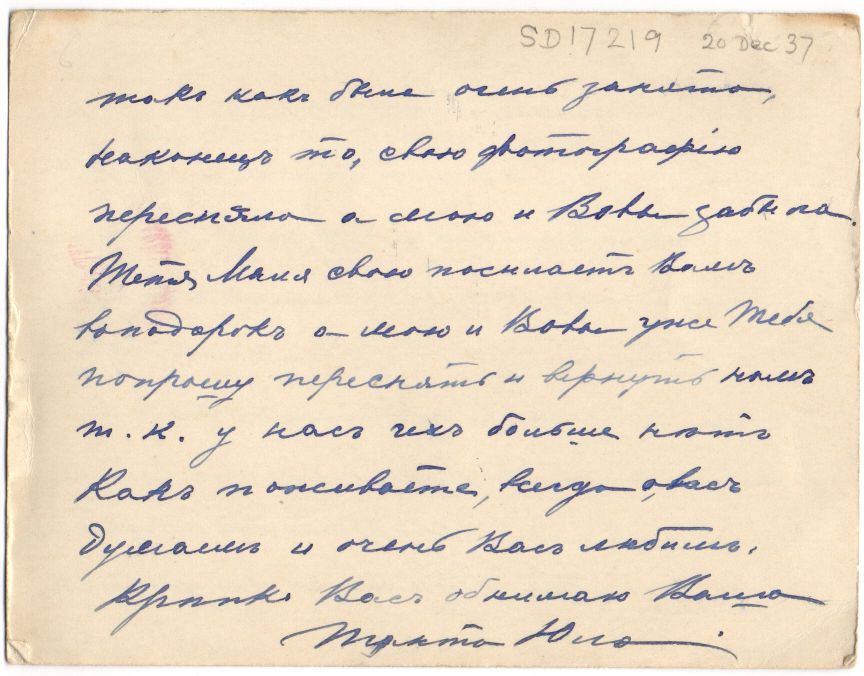 SD17219 20 Dec 37
такъ какъ была очень занята,
наконецъ то, свою фотографію
пересняла а мою и Вовы забыла.
Тетя Маля свою посылаетъ Вамъ
въ подарокъ а мою и Вовы уже Тебя
попрошу переснять и вернуть намъ
т. к. у насъ ихъ больше нѣтъ
Какъ поживаете, всегда о васъ
думаемъ и очень Васъ любимъ.
Крѣпко Васъ обнимаю Ваша
Юла